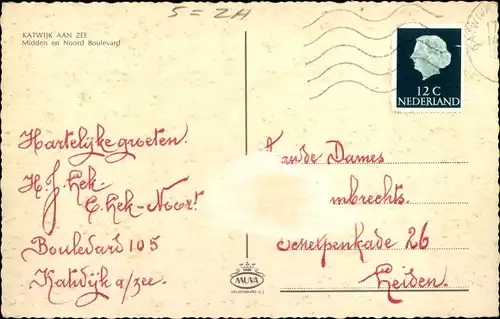 5 = 2A
KATWIJK AAN ZEE
Midden en Noord Boulevard
KATWIJK
12 C
NEDERLAND
Hartelijke groeten.
H. J. Hek
C. Hek-Noort
Boulevard 105
Katwijk a/zee.
Aan de Dames
mbrechts.
chelpenkade 26
Leiden.
MUVA
VALKENBURG Z.H.